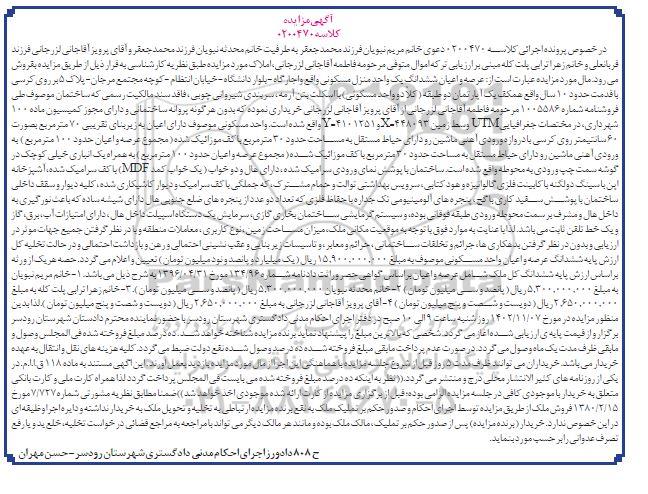 آگهی مزایده
کلاسه ۰۲۰۰۴۷۰
در خصوص پرونده اجرائی کلاسه ۰۲۰۰۴۷۰ دعوی خانم مریم نبویان فرزند محمد جعفر به طرفیت خانم محدثه نبویان فرزند محمد جعفر و آقای پرویز آقاجانی لزرجانی فرزند
قربانعلی و خانم زهرا ترابی پلت کله مبنی بر ارزیابی ترکه اموال متوفی مرحومه فاطمه آقاجانی لزرجانی، املاک مورد مزایده طبق نظریه کارشناسی به قرار ذیل از طریق مزایده بفروش
می رود. مال مورد مزایده عبارت است از: عرصه و اعیان ششدانگ یک واحد منزل مسکونی واقع واجارگاه - بلوار دانشگاه - خیابان انتظام - کوچه مجتمع مرجان - پلاک ۵ بر روی کرسی
با قدمت حدود ۱۰ سال واقع همکف یک آپارتمان دو طبقه (کلا دو واحد مسکونی) با اسکلت بتن آرمه، سربندی شیروانی چوبی، فاقد سند مالکیت رسمی که ساختمان موصوف طی
فروشنامه شماره ۱۰۰۵۵۸۶ مرحومه فاطمه آقاجانی لزرجانی از آقای پرویز آقاجانی لزرجانی خریداری نموده که بدون هر گونه پروانه ساختمانی و دارای مجوز کمیسیون ماده ۱۰۰
شهرداری، در مختصات جغرافیایی UTM وسط زمین X=۴۴۸۰۹۳ و Y=۴۱۰۱۲۵۱ واقع شده است. واحد مسکونی موصوف دارای اعیان به زیربنای تقریبی ۷۰ مترمربع بصورت
۶۰ سانتیمتر روی کرسی با دروازه ورودی آهنی ماشین رو دارای حیاط مستقل به مساحت حدود ۳۰ مترمربع با کف موزائیک شده (مجموع عرصه و اعیان حدود ۱۰۰ مترمربع) به
ورودی آهنی ماشین رو دارای حیاط مستقل به مساحت حدود ۳۰ مترمربع با کف موزائیک شده (مجموع عرصه و اعیان حدود ۱۰۰ مترمربع) به همراه یک انباری خیلی کوچک در
گوشه سمت چپ ورودی به محوطه واقع شده است. ساختمان با پوشش نمای ورودی سرامیک شده، دارای هال و دو خواب (یک خواب کمد MDF) با کف سرامیک شده، آشپزخانه
اپن با سینک دولگنه با کابینت فلزی گالوانیزه و هود کتابی، سرویس بهداشتی توالت و حمام مشترک که جملگی با کف سرامیک و دیوار کاشیکاری شده، کلیه دیوار و سقف داخلی
ساختمان با پوشش سفید کاری با گچ، پنجره های آلومینیومی تک جداره با حفاظ فلزی که تعداد دو عدد از پنجره های ضلع جنوبی هال دارای شیشه ساده که باعث نورگیری به
داخل هال و مشرف بر سمت محوطه ورودی طبقه فوقانی بوده، و سیستم گرمایشی ساختمان بخاری گازی، سرمایش یک دستگاه اسپیلت داخل هال، دارای امتیازات آب، برق، گاز
و یک خط تلفن ثابت می باشد. لذا با عنایت به موارد فوق با توجه به موقعیت مکانی ملک، میزان مساحت زمین، نوع کاربری، معاملات منطقه و با در نظر گرفتن جمیع جهات موثر در
ارزیابی و بدون در نظر گرفتن بدهکاری ها، جرائم و تخلفات ساختمانی، جرائم و معابر، و تاسیسات زیربنایی و عقب نشینی احتمالی و رهن و بازداشت احتمالی و در حالت تخلیه کل
ارزش پایه ششدانگ عرصه و اعیان واحد مسکونی موصوف به مبلغ ۱۵،۹۰۰،۰۰۰،۰۰۰ ریال (یک میلیارد و پانصد و نود میلیون تومان) تعیین و اعلام می گردد. حصه هر یک از ورثه
براساس ارزش پایه ششدانگ کل ملک شامل عرصه و اعیان بر اساس گواهی حصر وراثت دادنامه شماره ۱۳۴/۹۶ مورخ ۱۳۹۶/۰۴/۳۱ به شرح ذیل می باشد. ۱- خانم مریم نبویان
به مبلغ ۵،۳۰۰،۰۰۰،۰۰۰ ریال (پانصد و سی میلیون تومان) ۲- خانم محدثه نبویان ۵،۳۰۰،۰۰۰،۰۰۰ ریال (پانصد و سی میلیون تومان). ۳- خانم زهرا ترابی پلت کله به مبلغ
۲،۶۵۰،۰۰۰،۰۰۰ ریال (دویست و شصت و پنج میلیون تومان) ۴- آقای پرویز آقاجانی لزرجانی به مبلغ ۲،۶۵۰،۰۰۰،۰۰۰ ریال (دویست و شصت و پنج میلیون تومان). لذا بدین
منظور مزایده در مورخ ۱۴۰۲/۱۱/۰۷ روز شنبه ساعت ۹ الی ۱۰ صبح در دفتر اجرای احکام مدنی دادگستری شهرستان رودسر با حضور نماینده محترم دادستان شهرستان رودسر
برگزار و از قیمت پایه ی ارزیابی شده آغاز می گردد. شخصی که بالاترین مبلغ را پیشنهاد نماید برنده مزایده شناخته خواهد شد. ده درصد مبلغ فروخته شده فی المجلس وصول و
مابقی ظرف مدت یک ماه وصول می گردد. در صورت عدم پرداخت مابقی مبلغ فروخته شده ده درصد وصول شده به نفع دولت ضبط می گردد. کلیه هزینه های نقل و انتقال به عهده
خریدار می باشد. خریداران می توانند ظرف مدت ۵ روز قبل از شروع جلسه مزایده با هماهنگی این اجرا از مال مورد مزایده بازدید بعمل آورند. این آگهی مستند به ماده ۱۱۸ ق.ا.م. در
یکی از روزنامه های کثیر الانتشار محلی درج و منتشر می گردد. ((نظر به اینکه ده درصد مبلغ فروخته شده می بایست فی المجلس پرداخت گردد لذا همراه کارت ملی و کارت بانکی
متعلق به خریدار با موجودی کافی در جلسه مزایده الزامی بوده؛ قبل از برگزاری مزایده از کارت ارائه شده موجودی اخذ خواهد شد)) ضمنا مطابق نظریه مشورتی شماره ۷/۷۲۷ مورخ
۱۳۸۰/۲/۱۵ فروش ملک از طریق مزایده توسط اجرای احکام و صدور حکم بر تملیک ملک به نفع برنده مزایده ارتباطی به تخلیه و تحویل ملک به خریدار نداشته و دایره اجرا وظیفه ای
در این خصوص ندارد. خریدار (برنده مزایده) پس از صدور حکم بر تملیک، مالک ملک بوده و مانند هر مالک دیگر می تواند با مراجعه به مراجع قضائی در خواست تخلیه، خلع ید و یا رفع
تصرف عدوانی را بر حسب مورد بنماید.
ح ۸۰۸ دادورز اجرای احکام مدنی دادگستری شهرستان رودسر - حسن مهران